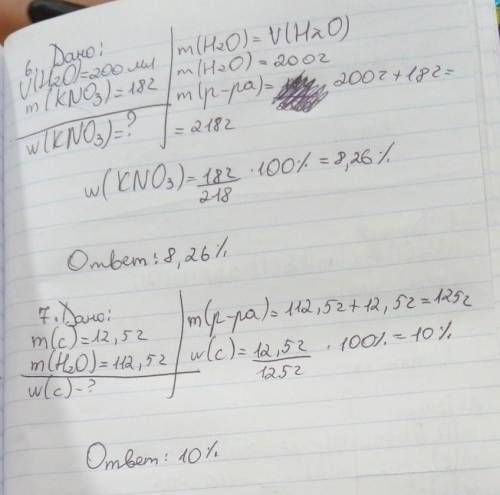 6. Дано:
V(H₂O)=200 мл
m(KNO₃)=18г
w(KNO₃)=?
m(H₂O)=V(H₂O)
m(H₂O)=200г
m(р-ра)= 200г+18г=
=218г
w(KNO₃)=18г/218 ·100%=8,26%
Ответ: 8,26%
7. Дано:
m(c)=12,5г
m(H₂O)=112,5г
w(c)-?
m(р-ра)=112,5г+12,5г=125г
w(c)=12,5г/125г ·100%=10%
Ответ: 10%